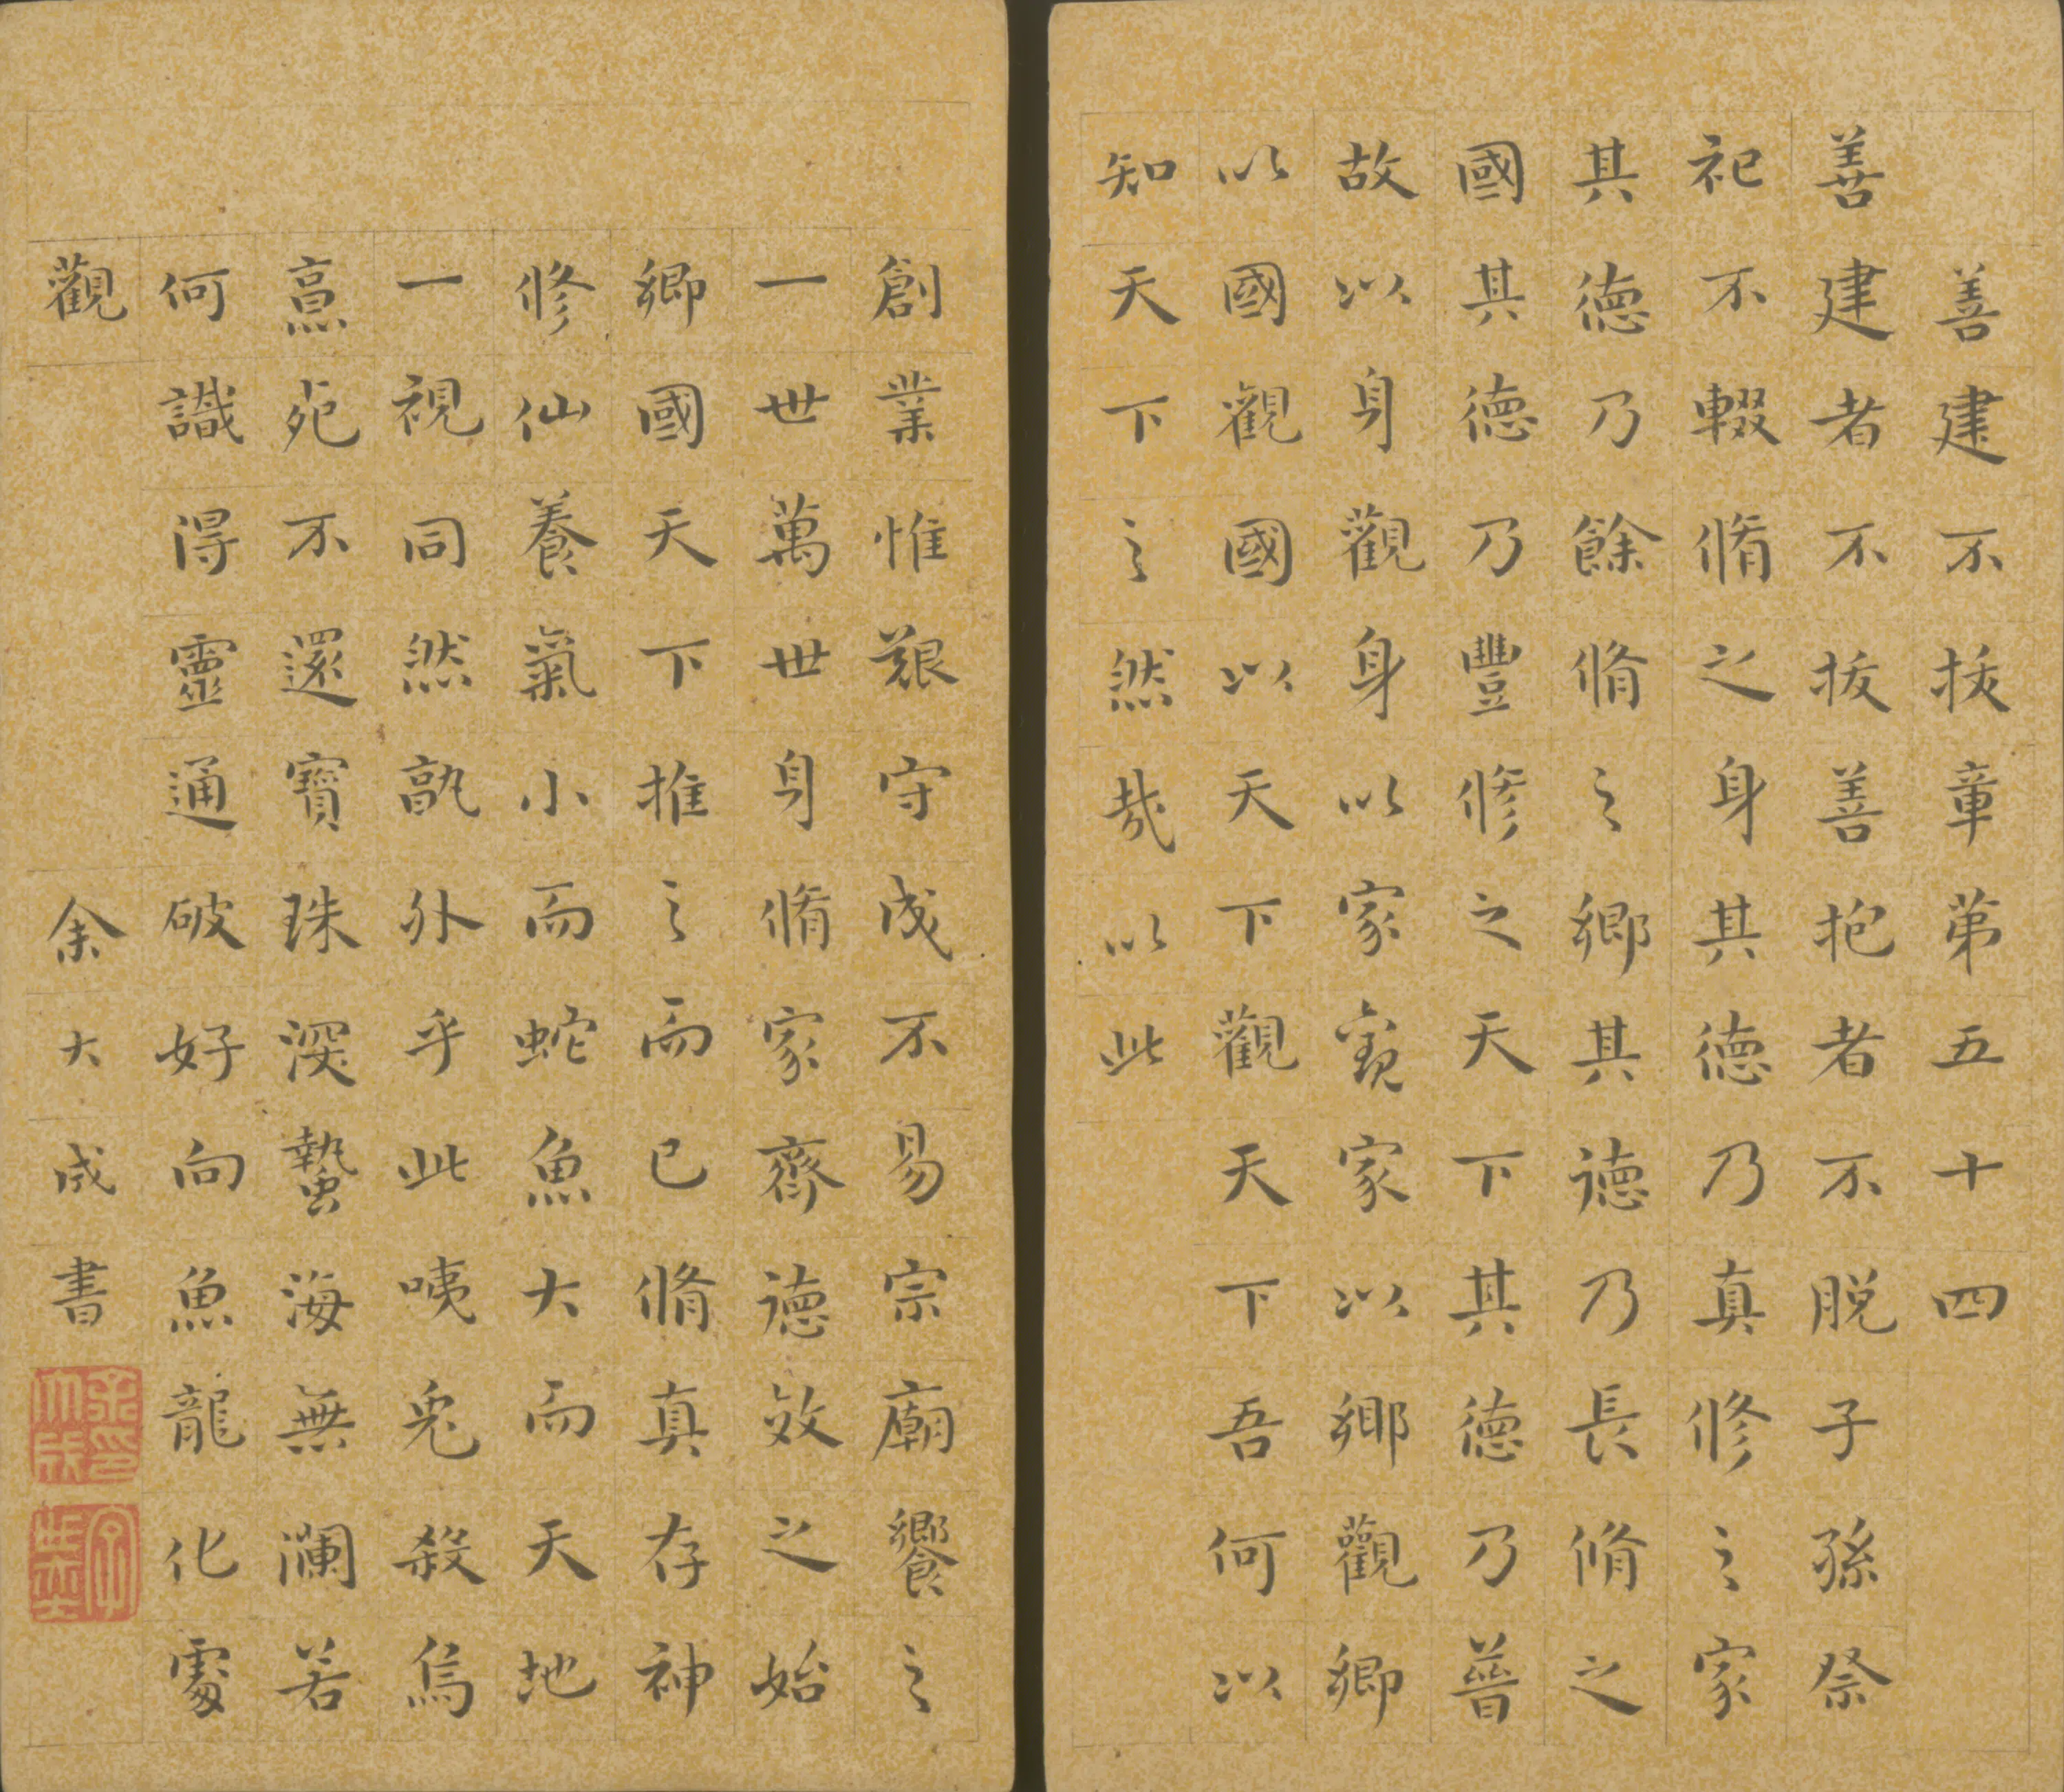 善建不拔章第五十四
善建者不拔善抱者不脫子孫祭
祀不輟脩之身其德乃真修之家
其德乃餘脩之鄉其德乃長脩之
國其德乃豐修之天下其德乃普
故以身觀身以家觀家以鄉觀鄉
以國觀國以天下觀天下吾何以
知天下之然哉以此
創業惟艱守成不易宗廟饗之
一世萬世身脩家齊德效之始
鄉國天下推之而已脩真存神
修仙養氣小而蛇魚大而天地
一視同然孰外乎此咦兎殺烏
烹死不還寶珠深蟄海無瀾若
何識得靈通破好向魚龍化處
觀
余大成書